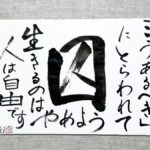 こうあるべき
にとらわれて
囚
生きるのは
やめよう
人は自由です